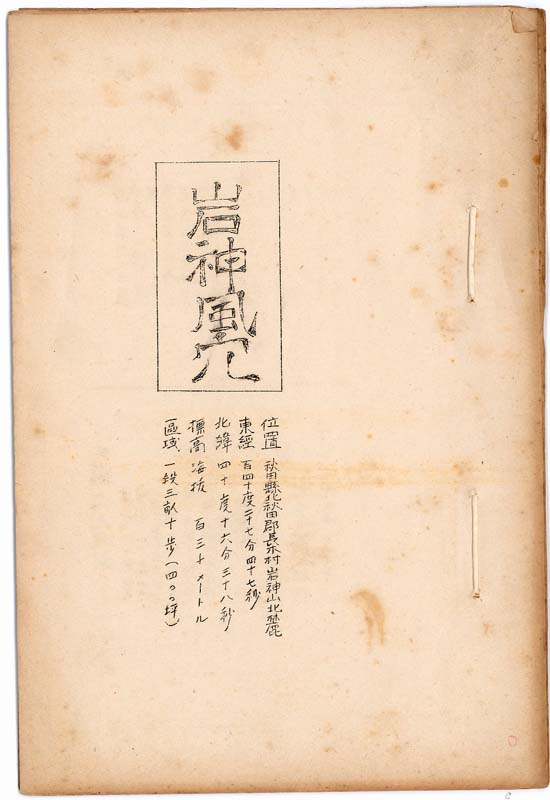 岩神風穴
位置 秋田縣北秋田郡長木村岩神山北麓
東經 百四十度三十七分四十七秒
北緯 四十度十六分三十八秒
標高 海抜 百三十メートル
區域 一段三畝十歩(四〇〇坪)